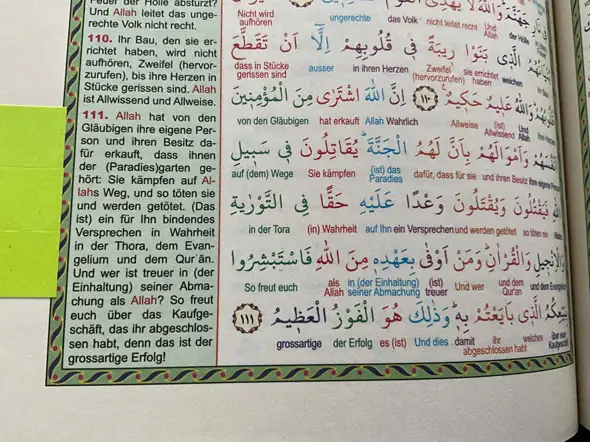 Feuer der Hölle abstürzt?
Und Allah leitet das unge-
rechte Volk nicht recht.
110. Ihr Bau, den sie er-
richtet haben, wird nicht
aufhören, Zweifel (hervor-
zurufen), bis ihre Herzen in
Stücke gerissen sind. Allah
ist Allwissend und Allweise.
111. Allah hat von den
Gläubigen ihre eigene Per-
son und ihren Besitz da-
für erkauft, dass ihnen
der (Paradies)garten ge-
hört: Sie kämpfen auf Al-
lahs Weg, und so töten sie
und werden getötet. (Das
ist) ein für Ihn bindendes
Versprechen in Wahrheit
in der Thora, dem Evan-
gelium und dem Qurʾān.
Und wer ist treuer in (der
Einhaltung) seiner Abma-
chung als Allah? So freut
euch über das Kaufge-
schäft, das ihr abgeschlos-
sen habt, denn das ist der
grossartige Erfolg!
جَهَنَّمَ وَاللَّهُ لَا يَهْدِي الْقَوْمَ
Nicht wird aufhören ungerechte das Volk nicht leitet recht Und Allah der Hölle
الَّذِي بَنَوْا رِيبَةً فِي قُلُوبِهِمْ إِلَّا أَنْ تَقَطَّعَ
dass in Stücke gerissen sind ausser in ihren Herzen Zweifel (hervorzurufen) sie errichtet haben welchen
وَاللَّهُ عَلِيمٌ حَكِيمٌ ١١٠ إِنَّ اللَّهَ اشْتَرَى مِنَ الْمُؤْمِنِينَ
von den Gläubigen hat erkauft Allah Wahrlich Allweise (ist) Allwissend Und Allah
أَنْفُسَهُمْ وَأَمْوَالَهُمْ بِأَنَّ لَهُمُ الْجَنَّةَ يُقَاتِلُونَ فِي سَبِيلِ
auf (dem) Wege Sie kämpfen (ist) das Paradies dafür, dass für sie und ihren Besitz ihre eigene
فَيَقْتُلُونَ وَيُقْتَلُونَ وَعْدًا عَلَيْهِ حَقًّا فِي التَّوْرَاةِ
in der Tora (in) Wahrheit auf Ihn ein Versprechen und werden getötet so töten sie
وَالْإِنْجِيلِ وَالْقُرْآنِ وَمَنْ أَوْفَى بِعَهْدِهِ مِنَ اللَّهِ فَاسْتَبْشِرُوا
So freut euch als Allah in (der Einhaltung) seiner Abmachung (ist) treuer Und wer und dem Qur'an und dem
بِبَيْعِكُمُ الَّذِي بَايَعْتُمْ بِهِ وَذَلِكَ هُوَ الْفَوْزُ الْعَظِيمُ ١١١
grossartige der Erfolg es (ist) Und dies damit ihr abgeschlossen habt welches über euer